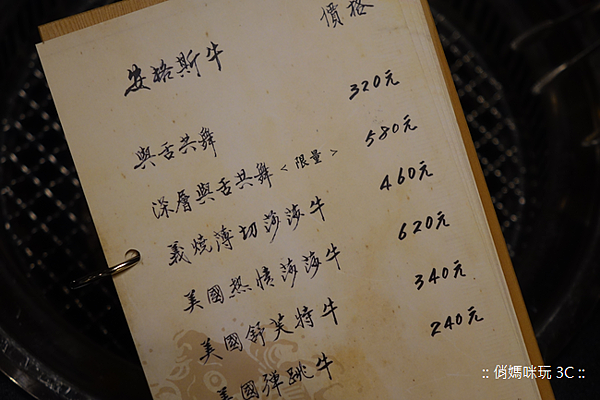 安格斯牛 價格
與舌共舞 320元
深層與舌共舞<限量> 580元
義燒薄切莎海牛 460元
美國熱情莎海牛 620元
美國舒芙特牛 340元
美國彈跳牛 240元
:: 俏媽咪玩 3C ::